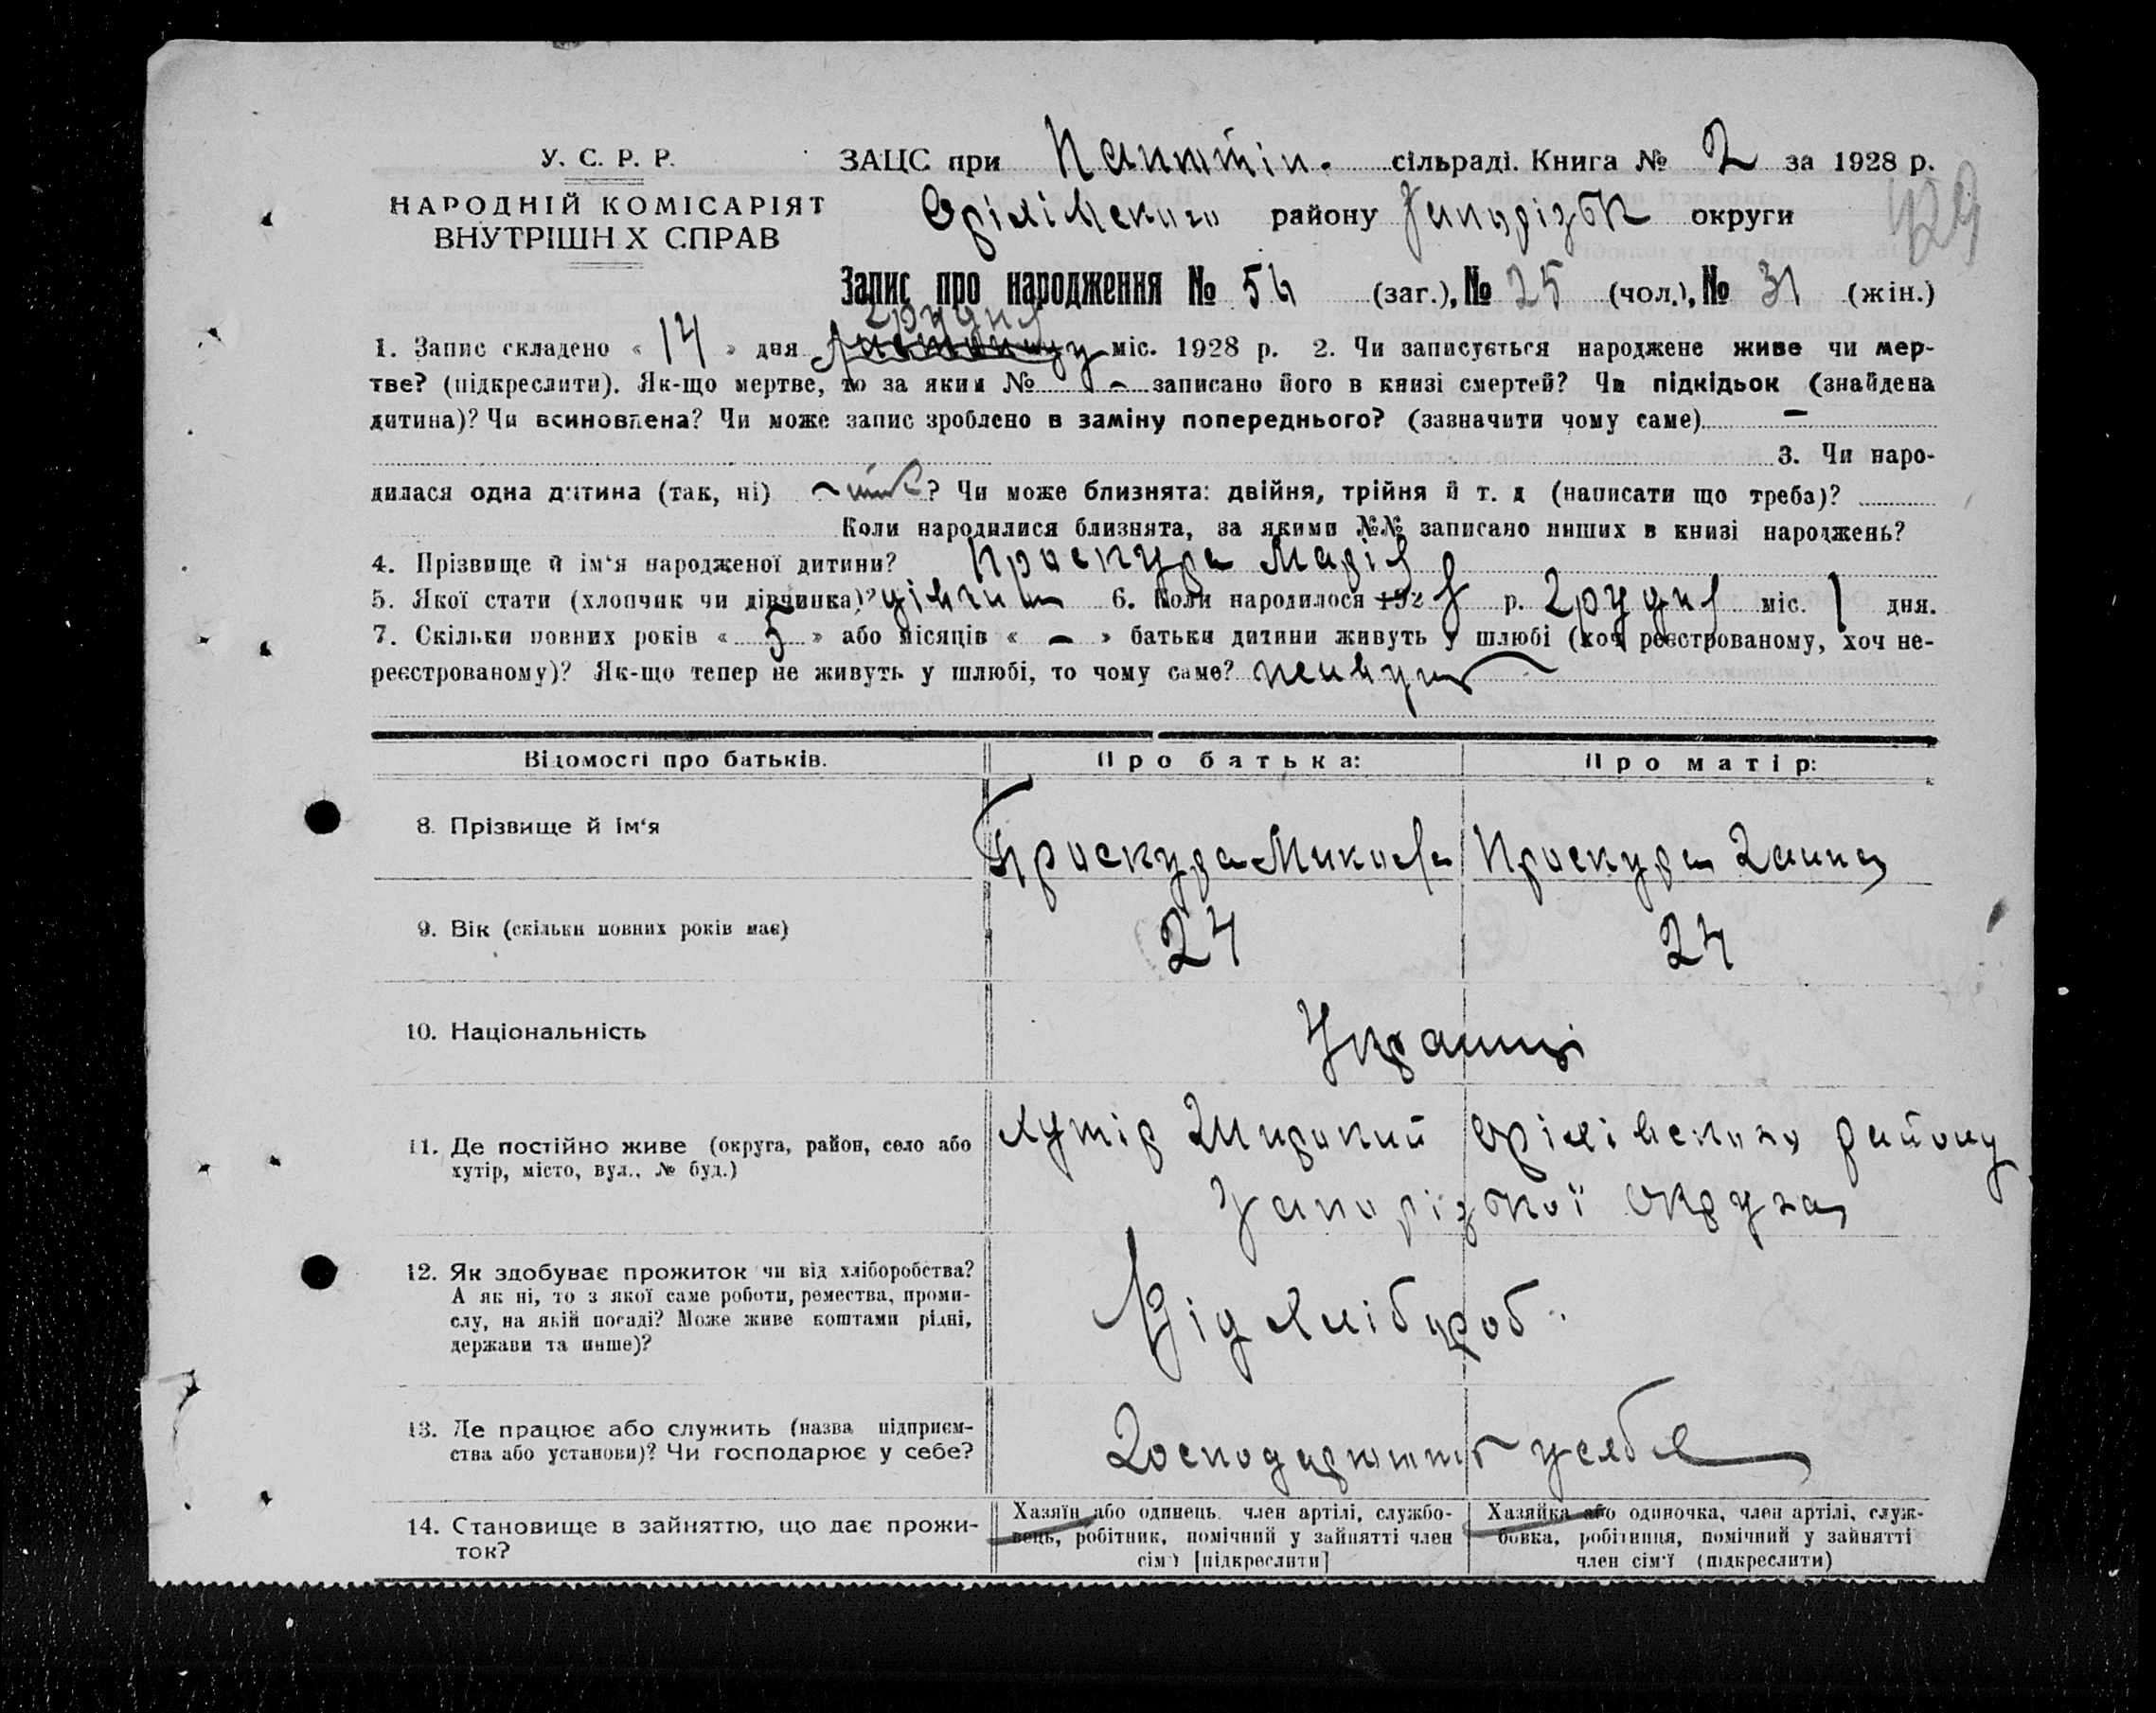 У. С. Р. Р.
НАРОДНІЙ КОМІСАРІЯТ
ВНУТРІШН Х СПРАВ
ЗАЦС при сільраді. Книга № 2 за 1928 р.
Оріхівського району Запорізьк округи
Запис про народження № 56 (заг.), № 25 (чол.), № 31 (жін.)
грудня
1. Запис складено « 14 » дня міс. 1928 р. 2. Чи записується народжене живе чи мер-
тве? (підкреслити). Як-що мертве, то за яким № – записано його в книзі смертей? Чи підкідьок (знайдена
дитина)? Чи всиновлена? Чи може запис зроблено в заміну попереднього? (зазначити чому саме) –
3. Чи наро-
дилася одна дитина (так, ні) ? Чи може близнята: двійня, трійня й т. д (написати що треба)?
Коли народилися близнята, за якими №№ записано инших в книзі народжень?
4. Прізвище й ім'я народженої дитини? Проскура Марія
5. Якої стати (хлопчик чи дівчинка)? дівчина 6. Коли народилося 192 8 р. грудня міс. 1 дня.
7. Скільки повних років « 5 » або місяців « – » батьки дитини живуть у шлюбі (хоч реєстрованому, хоч не-
реєстрованому)? Як-що тепер не живуть у шлюбі, то чому саме? живуть
Відомості про батьків. Про батька: Про матір:
8. Прізвище й ім'я Проскура Микола Проскура Ганна
9. Вік (скільки повних років має) 24 24
10. Національність Українці
11. Де постійно живе (округа, район, село або
хутір, місто, вул., № буд.)
хутір Широкий Оріхівського району
Запорізької округа
12. Як здобуває прожиток чи від хліборобства?
А як ні, то з якої саме роботи, ремества, проми-
слу, на якій посаді? Може живе коштами рідні,
держави та инше)?
Від хлібороб.
13. Де працює або служить (назва підприєм-
ства або установи)? Чи господарює у себе?
Господарюють у себе
14. Становище в зайняттю, що дає прожи-
ток?
Хазяїн або одинець, член артілі, службо-
вець, робітник, помічний у зайнятті член
сім'ї [підкреслити]
Хазяйка або одиночка, член артілі, служ-
бовка, робітниця, помічний у зайнятті
член сім'ї (підкреслити)